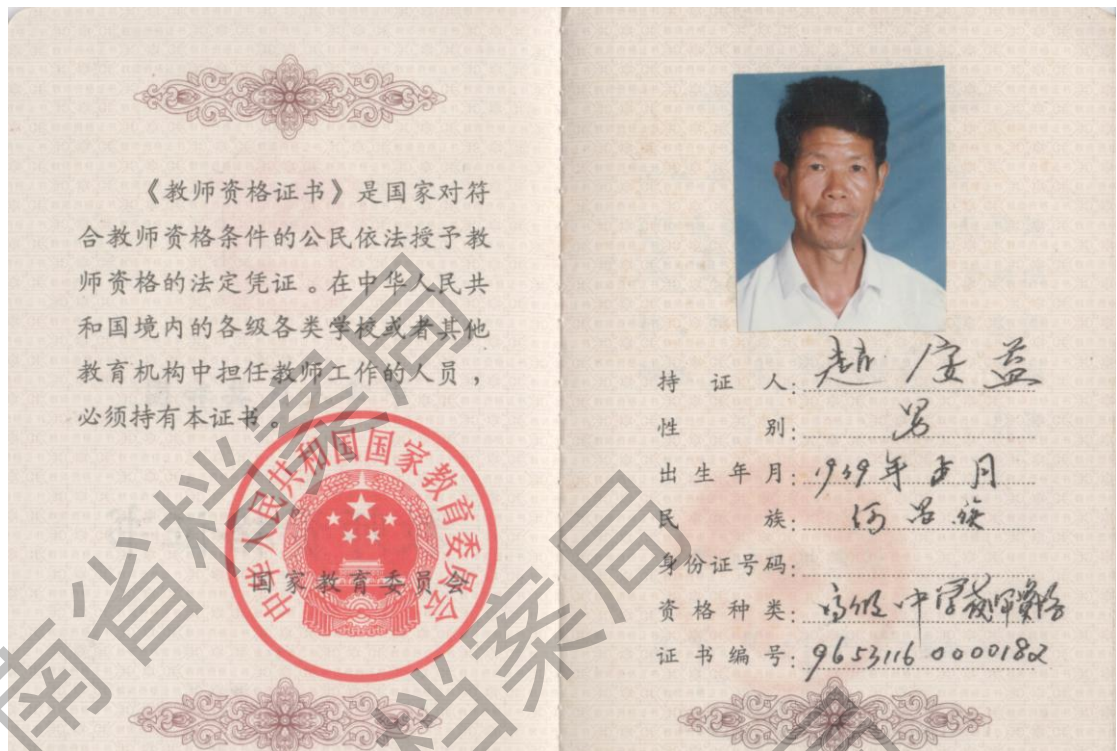 《教师资格证书》是国家对符
合教师资格条件的公民依法授予教
师资格的法定凭证。在中华人民共
和国境内的各级各类学校或者其他
教育机构中担任教师工作的人员，
必须持有本证书。
中华人民共和国国家教育委员会
国家教育委员会
持证人：赵安益
性别：男
出生年月：1939年 月
民族：
身份证号码：
资格种类：高级中学教师资格
证书编号：9653116 0000182
南省档案局
档案局